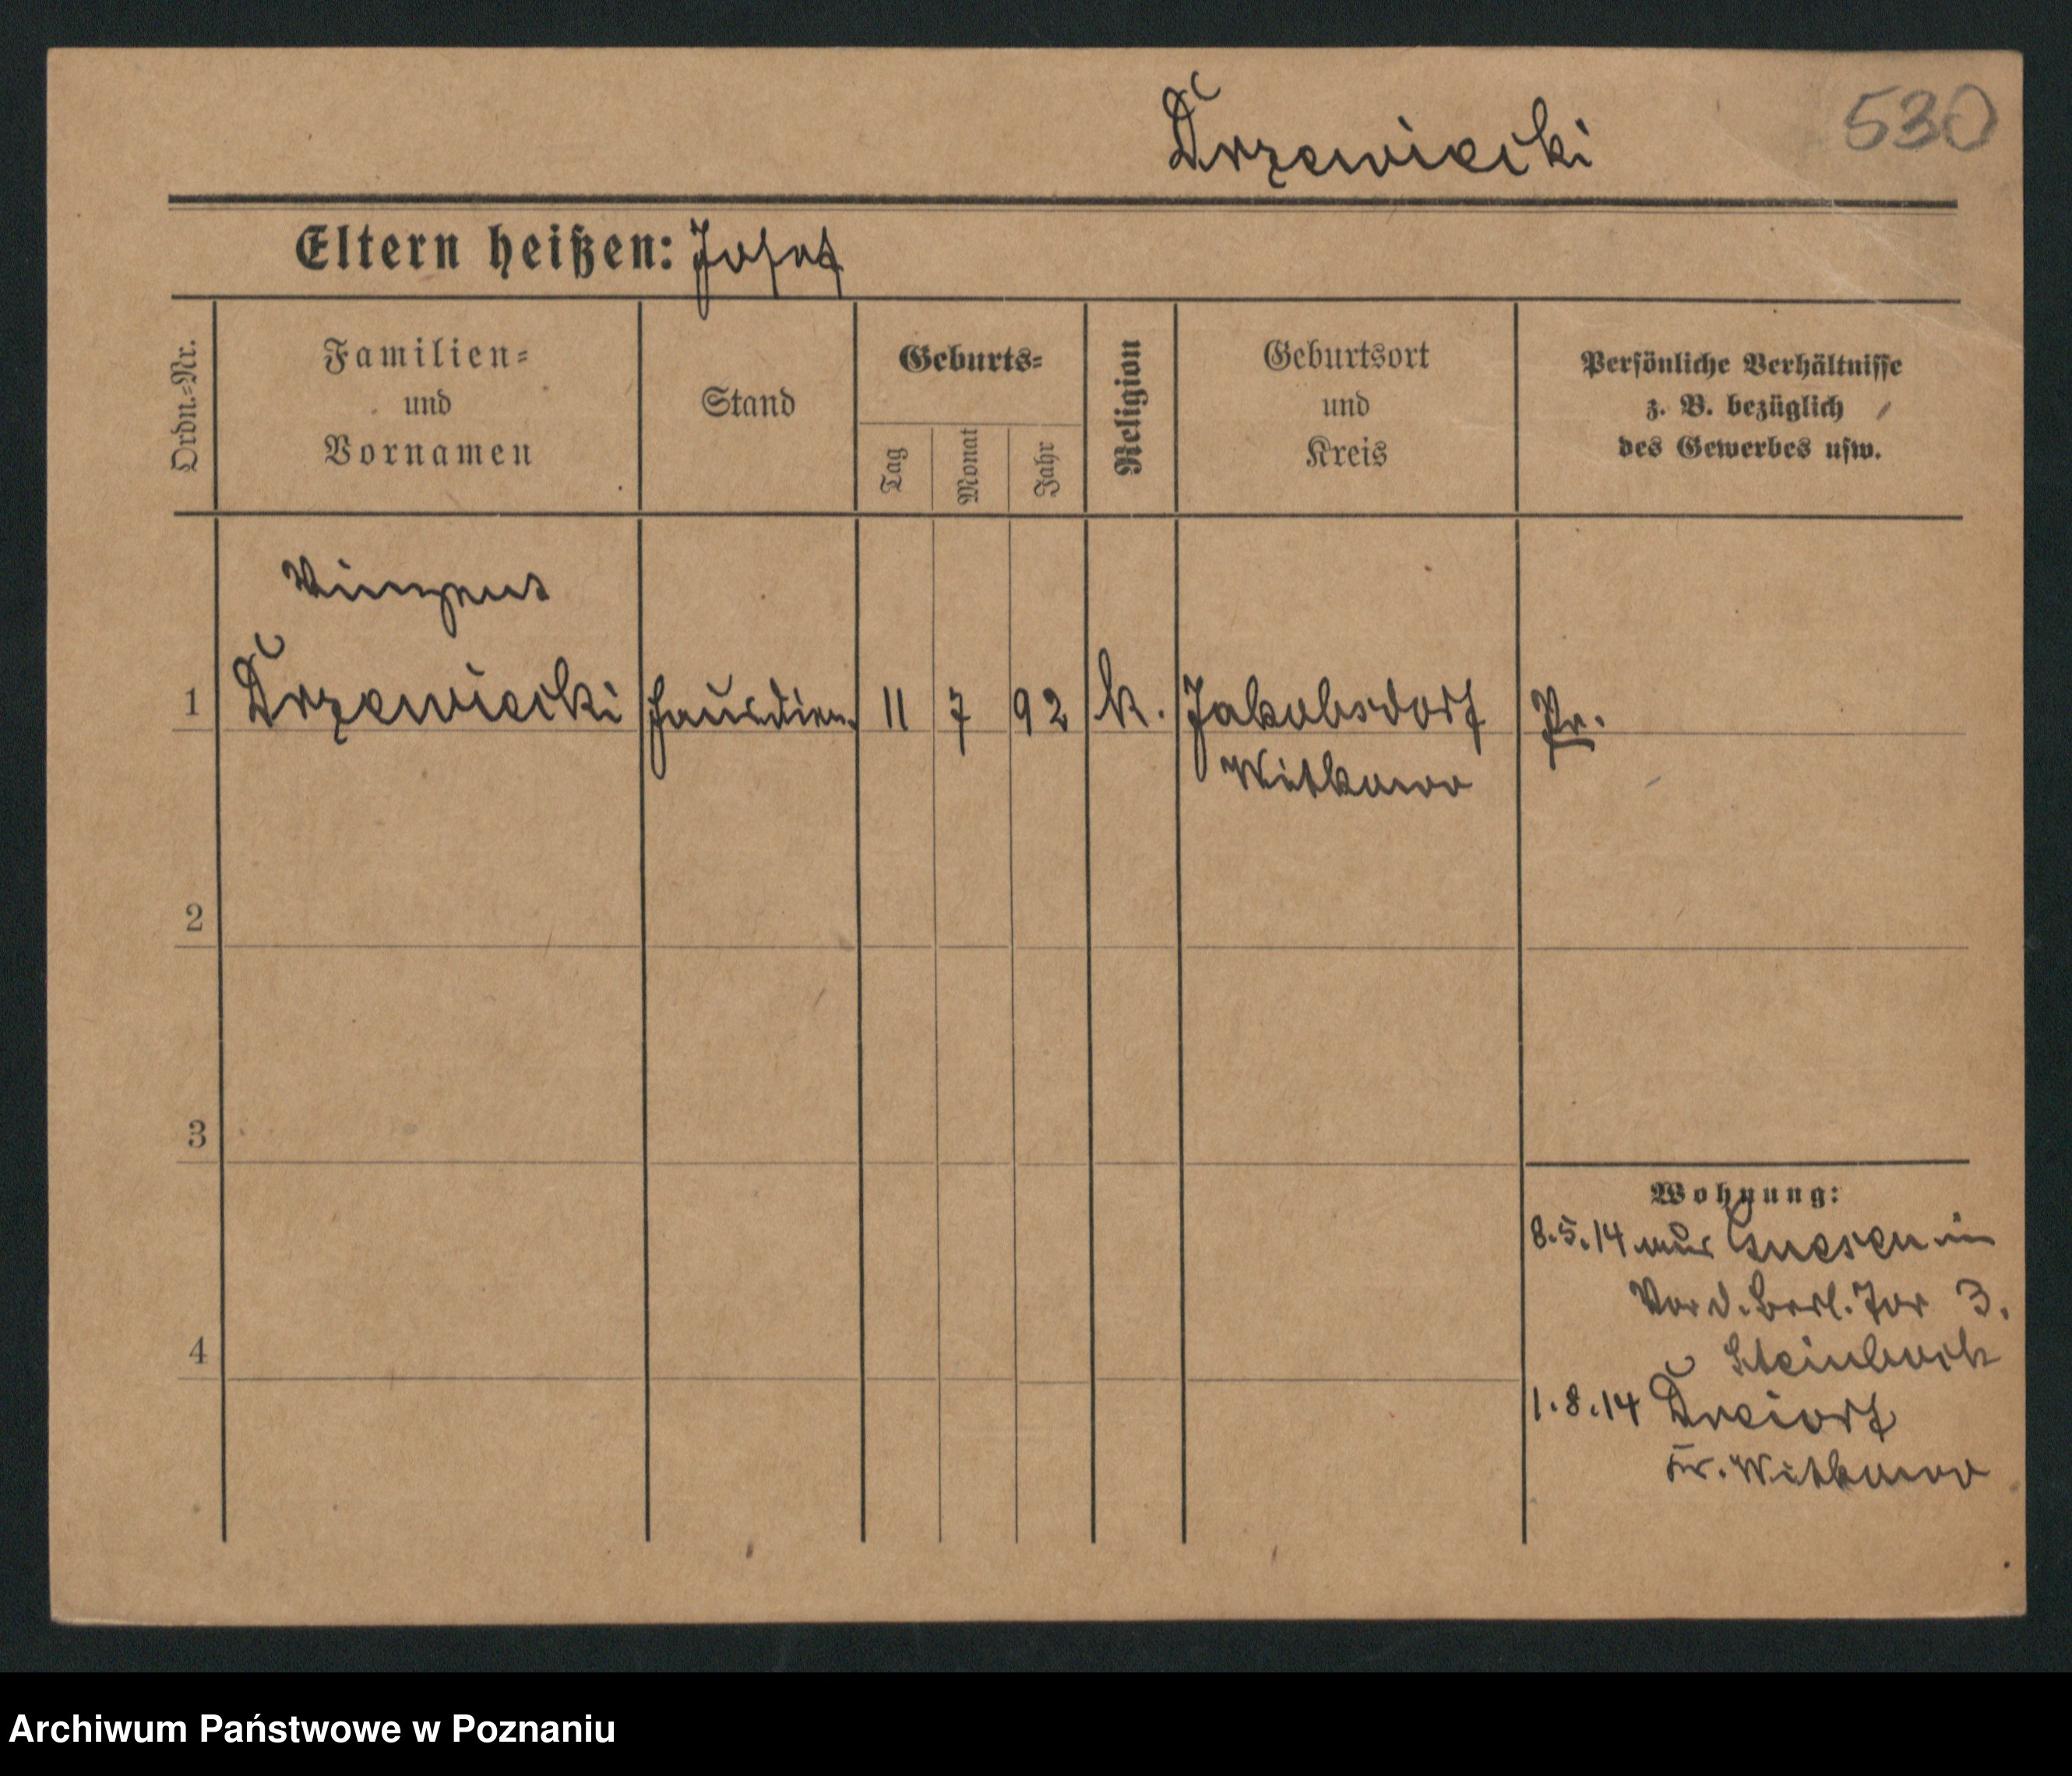 530
Drzewiecki
Eltern heißen: Josef
Ordn.-Nr.
Familien-
und
Vornamen
Stand
Geburts-
Tag
Monat
Jahr
Religion
Geburtsort
und
Kreis
Persönliche Verhältnisse
z. B. bezüglich
des Gewerbes usw.
Vinzent
1 Drzewiecki Hausdien. 11 7 92 k. Jakobsdorf Pr.
Witkowo
2
3
Wohnung:
8.5.14 aus Gnesen in
Vor d. Berl. Tor 3.
4
1.8.14
Kr. Witkowo
Archiwum Państwowe w Poznaniu